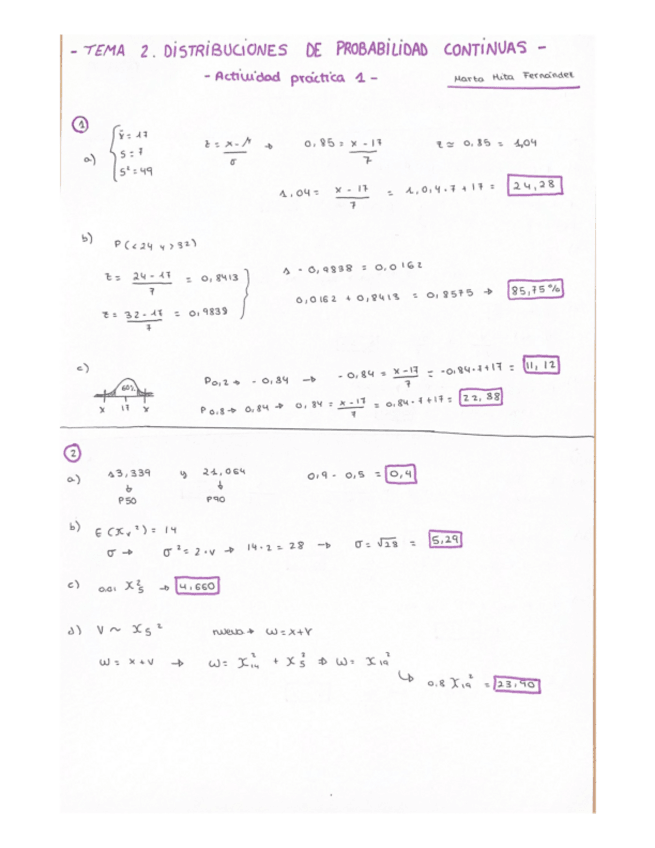 - TEMA 2. DISTRIBUCIONES DE PROBABILIDAD CONTINUAS -
- Actividad práctica 1 -
Marta Mita Fernández
①
a) { x̄ = 17
S = 7
S² = 49
z = x - μ / σ → 0,85 = x - 17 / 7 z ≃ 0,85 = 1,04
1,04 = x - 17 / 7 = 1,0,4·7 + 17 = 24,28
b) P(<24 y >32)
z = 24 - 17 / 7 = 0,8413
z = 32 - 17 / 7 = 0,9838
1 - 0,9838 = 0,0162
0,0162 + 0,8413 = 0,8575 → 85,75%
c) 60%
x 17 x
P0,2 → - 0,84 → - 0,84 = x - 17 / 7 = -0,84·7+17 = 11,12
P0,8 → 0,84 → 0,84 = x - 17 / 7 = 0,84·7+17 = 22,88
②
a) 13,339 y 21,064 0,9 - 0,5 = 0,4
P50 P90
b) E(Xv²) = 14
σ → σ² = 2·v → 14·2 = 28 → σ = √28 = 5,29
c) 0.01 X²5 → 4.660
d) V ~ X5² nueva → W = x+V
W = x+V → W = X²14 + X²5 ⇒ W = X²19
↳ 0.8 X²19 = 23,90